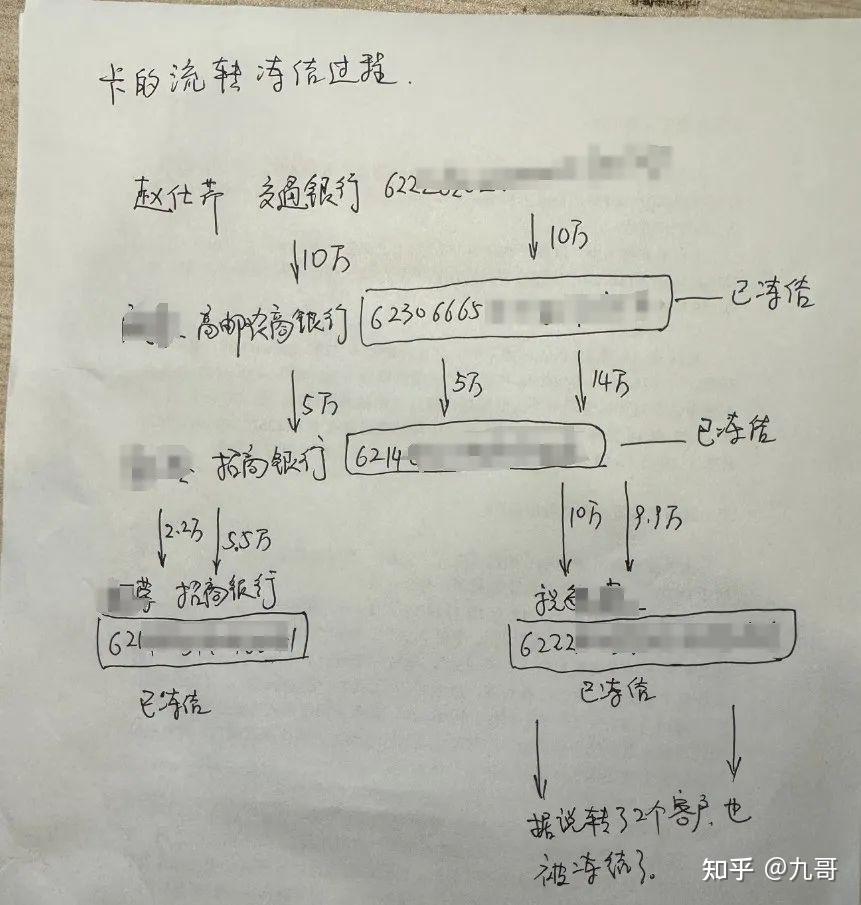 卡的流转冻结过程.
赵仕芹 交通银行 622
10万 10万
高邮农商银行 62306665 已冻结
5万 5万 14万
招商银行 6214 已冻结
2.2万 5.5万 10万 9.9万
招商银行
621 6222
已冻结 已冻结
据说转了2个客户,也
被冻结了。
知乎 @九哥